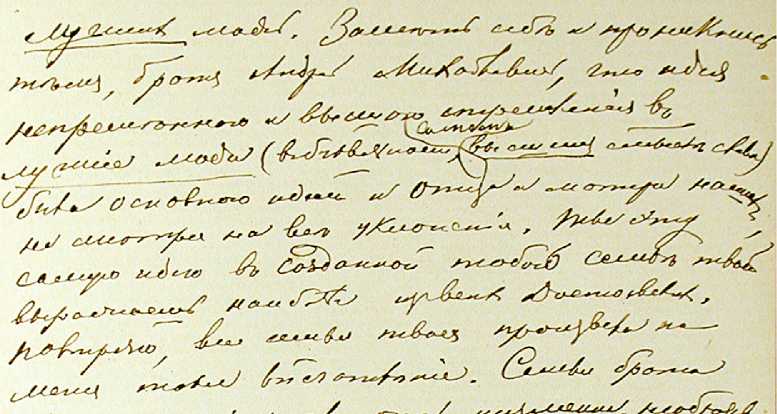 лучшихъ людей. Замѣть себѣ и проникнись
тѣмъ, братъ Андрей Михайловичъ, что идея
непремѣннаго и высшаго стремленія въ
лучшіе люди (въ буквальномъ, самомъ высшемъ смыслѣ слова)
была основною идеей и отца и матери нашихъ,
не смотря на всѣ уклоненія. Ты эту
самую идею въ созданной тобою семьѣ твоей
выражаешь наиболѣе изъ всѣхъ Достоевскихъ.
Повторяю, вся семья твоя произвела на
меня такое впечатлѣніе. Семья брата